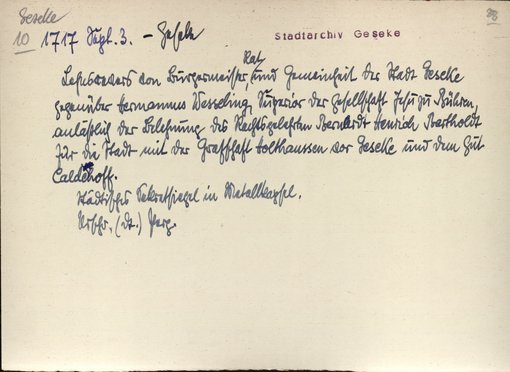 Geseke
10 1717 Sept. 3. - Geseke
Stadtarchiv Geseke
Rat,
Lehnsrevers von Bürgermeister, und Gemeinheit der Stadt Geseke
gegenüber Hermannus Wesseling, Superior der Gesellschaft Jesu zu Büren,
anläßlich der Belehnung des Rechtsgelehrten Bernhardt Henrich Bartholdt
für die Stadt mit der Graffschaft Holthaussen vor Geseke und dem Gut
Caldehoff.
Städtisches Sekretsiegel in Metallkapsel.
Urschr. (dt.) Perg.